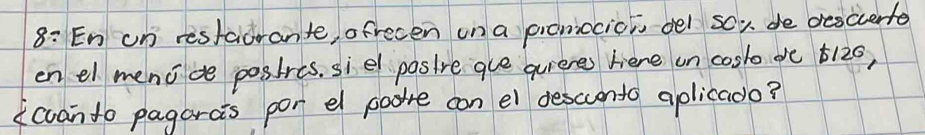 8: En un restaurante, ofrecen una promoción del 50% de descuento
en el menú de postres. si el postre que quieres tiene un costo de $120,
¿cuánto pagarás por el postre con el descuento aplicado?